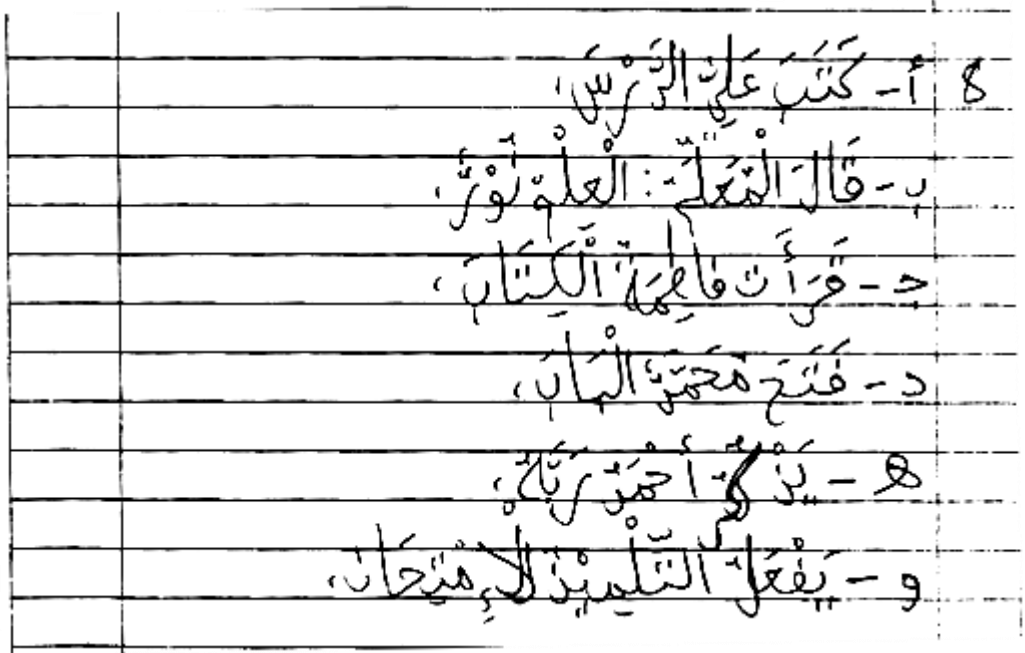 ٥ أ- كَتَبَ عَلِيٌّ الدَّرْسَ،
ب- قَالَ الْمُعَلِّمُ: الْعِلْمُ نُوْرٌ،
ج- قَرَأَت فَاطِمَةُ الْكِتَابَ،
د- فَتَحَ مُحَمَّدٌ الْبَابَ،
ه- يَذْكُرُ أَحْمَدُ رَبَّهُ،
و- يَفْعَلُ التِّلْمِيْذُ الْإِمْتِحَانَ،